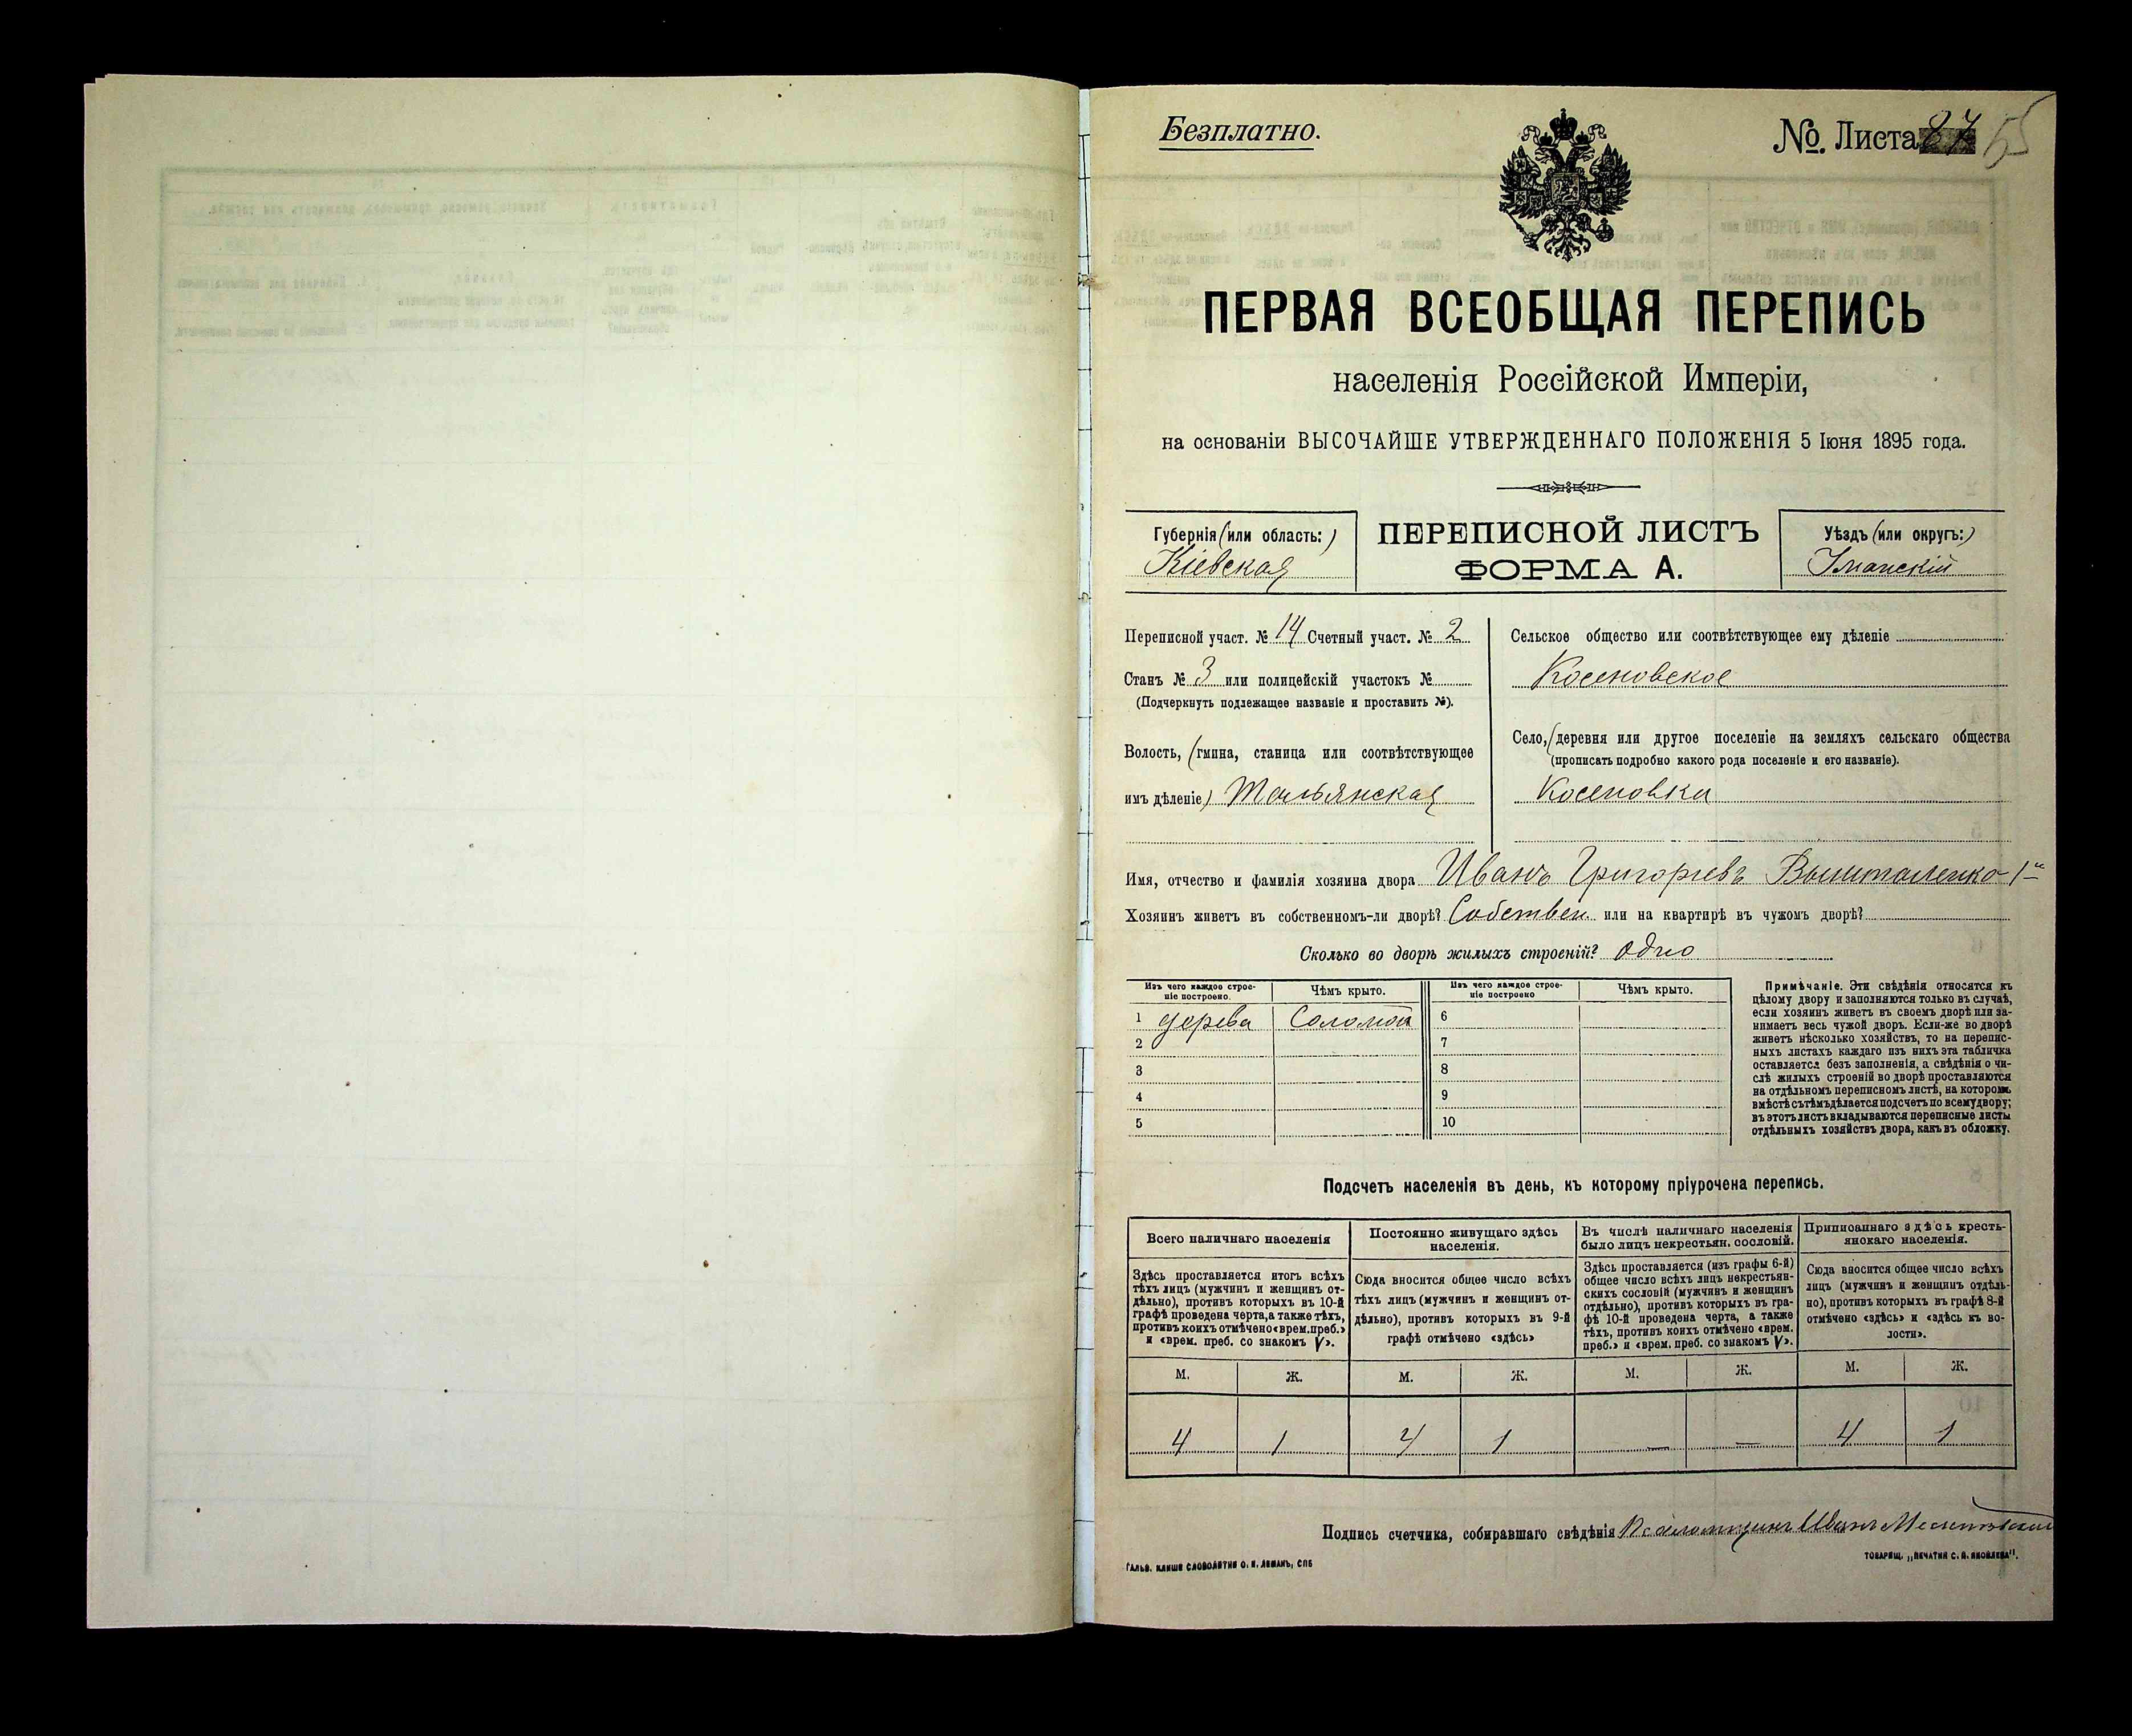 Безплатно.
№. Листа 87 55
ПЕРВАЯ ВСЕОБЩАЯ ПЕРЕПИСЬ
населенія Россійской Имперіи,
на основаніи ВЫСОЧАЙШЕ УТВЕРЖДЕННАГО ПОЛОЖЕНІЯ 5 Іюня 1895 года.
Губернія (или область:)
Кіевская
ПЕРЕПИСНОЙ ЛИСТЪ
ФОРМА А.
Уѣздъ (или округъ:)
Уманскій
Переписной участ. № 14 Счетный участ. № 2
Станъ № 3 или полицейскій участокъ №
(Подчеркнуть подлежащее названіе и проставить №).
Волость, (гмина, станица или соотвѣтствующее
имъ дѣленіе) Тальянская
Сельское общество или соотвѣтствующее ему дѣленіе
Косеновское
Село, (деревня или другое поселеніе на земляхъ сельскаго общества
(прописать подробно какого рода поселеніе и его названіе).
Косеновка
Имя, отчество и фамилія хозяина двора Иванъ Григорьевъ
Хозяинъ живетъ въ собственномъ-ли дворѣ? Собствен. или на квартирѣ въ чужомъ дворѣ?
Сколько во дворѣ жилыхъ строеній? одно
Изъ чего каждое строе-
ніе построено.
Чѣмъ крыто.
Изъ чего каждое строе-
ніе построено
Чѣмъ крыто.
1 дерева Соломой 6
2 7
3 8
4 9
5 10
Примѣчаніе. Эти свѣдѣнія относятся къ
цѣлому двору и заполняются только въ случаѣ,
если хозяинъ живетъ въ своемъ дворѣ или за-
нимаетъ весь чужой дворъ. Если-же во дворѣ
живетъ нѣсколько хозяйствъ, то на перепис-
ныхъ листахъ каждаго изъ нихъ эта табличка
оставляется безъ заполненія, а свѣдѣнія о чи-
слѣ жилыхъ строеній во дворѣ проставляются
на отдѣльномъ переписномъ листѣ, на которомъ
вмѣстѣ съ тѣмъ дѣлается подсчетъ по всему двору;
въ этотъ листъ вкладываются переписные листы
отдѣльныхъ хозяйствъ двора, какъ въ обложку.
Подсчетъ населенія въ день, къ которому пріурочена перепись.
Всего наличнаго населенія
Здѣсь проставляется итогъ всѣхъ
тѣхъ лицъ (мужчинъ и женщинъ от-
дѣльно), противъ которыхъ въ 10-й
графѣ проведена черта, а также тѣхъ,
противъ коихъ отмѣчено «врем. преб.»
и «врем. преб. со знакомъ V».
Постоянно живущаго здѣсь
населенія.
Сюда вносится общее число всѣхъ
тѣхъ лицъ (мужчинъ и женщинъ от-
дѣльно), противъ которыхъ въ 9-й
графѣ отмѣчено «здѣсь»
Въ числѣ наличнаго населенія
было лицъ некрестьян. сословій.
Здѣсь проставляется (изъ графы 6-й)
общее число всѣхъ лицъ некрестьян-
скихъ сословій (мужчинъ и женщинъ
отдѣльно), противъ которыхъ въ гра-
фѣ 10-й проведена черта, а также
тѣхъ, противъ коихъ отмѣчено «врем.
преб.» и «врем. преб. со знакомъ V».
Приписаннаго здѣсь кресть-
янскаго населенія.
Сюда вносится общее число всѣхъ
лицъ (мужчинъ и женщинъ отдѣль-
но), противъ которыхъ въ графѣ 8-й
отмѣчено «здѣсь» и «здѣсь къ во-
лости».
М. Ж. М. Ж. М. Ж. М. Ж.
4 1 4 1 — — 4 1
Подпись счетчика, собиравшаго свѣдѣнія Псаломщикъ Иванъ
ГАЛЬВ. КЛИШЕ СЛОВОЛИТНИ О. И. ЛЕМАНЪ, СПБ
ТОВАРИЩ. „ПЕЧАТНЯ С. П. ЯКОВЛЕВА".